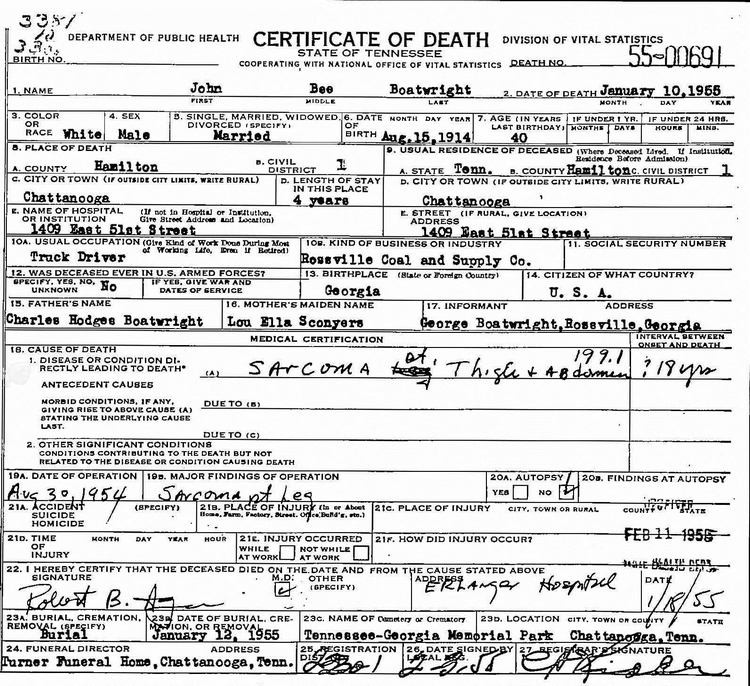 3381
DEPARTMENT OF PUBLIC HEALTH CERTIFICATE OF DEATH DIVISION OF VITAL STATISTICS
STATE OF TENNESSEE
BIRTH NO. COOPERATING WITH NATIONAL OFFICE OF VITAL STATISTICS DEATH NO. 55-00691
1. NAME John Bee Boatwright 2. DATE OF DEATH January 10,1955
FIRST MIDDLE LAST MONTH DAY YEAR
3. COLOR OR RACE White 4. SEX Male 5. SINGLE, MARRIED, WIDOWED, DIVORCED (SPECIFY) Married 6. DATE OF BIRTH MONTH DAY YEAR Aug.15,1914 7. AGE (IN YEARS LAST BIRTHDAY) 40 IF UNDER 1 YR. MONTHS DAYS IF UNDER 24 HRS. HOURS MINS.
8. PLACE OF DEATH 9. USUAL RESIDENCE OF DECEASED (Where Deceased Lived. If Institution, Residence Before Admission)
A. COUNTY Hamilton B. CIVIL DISTRICT 1 A. STATE Tenn. B. COUNTY Hamilton C. CIVIL DISTRICT 1
C. CITY OR TOWN (IF OUTSIDE CITY LIMITS, WRITE RURAL) D. LENGTH OF STAY IN THIS PLACE D. CITY OR TOWN (IF OUTSIDE CITY LIMITS, WRITE RURAL)
Chattanooga 4 years Chattanooga
E. NAME OF HOSPITAL OR INSTITUTION (If not in Hospital or Institution, Give Street Address and Location) E. STREET ADDRESS (IF RURAL, GIVE LOCATION)
1409 East 51st Street 1409 East 51st Street
10A. USUAL OCCUPATION (Give Kind of Work Done During Most of Working Life, Even if Retired) 10B. KIND OF BUSINESS OR INDUSTRY 11. SOCIAL SECURITY NUMBER
Truck Driver Rossville Coal and Supply Co.
12. WAS DECEASED EVER IN U.S. ARMED FORCES? 13. BIRTHPLACE (State or Foreign Country) 14. CITIZEN OF WHAT COUNTRY?
SPECIFY, YES, NO, UNKNOWN No IF YES, GIVE WAR AND DATES OF SERVICE Georgia U. S. A.
15. FATHER'S NAME 16. MOTHER'S MAIDEN NAME 17. INFORMANT ADDRESS
Charles Hodges Boatwright Lou Ella Sconyers George Boatwright,Rossville,Georgia
MEDICAL CERTIFICATION INTERVAL BETWEEN ONSET AND DEATH
18. CAUSE OF DEATH
1. DISEASE OR CONDITION DIRECTLY LEADING TO DEATH* (A) Sarcoma of Thigh + Abdomen 199.1 ? 18 yrs
ANTECEDENT CAUSES
MORBID CONDITIONS, IF ANY, GIVING RISE TO ABOVE CAUSE (A) STATING THE UNDERLYING CAUSE LAST. DUE TO (B)
DUE TO (C)
2. OTHER SIGNIFICANT CONDITIONS
CONDITIONS CONTRIBUTING TO THE DEATH BUT NOT
RELATED TO THE DISEASE OR CONDITION CAUSING DEATH
19A. DATE OF OPERATION 19B. MAJOR FINDINGS OF OPERATION 20A. AUTOPSY 20B. FINDINGS AT AUTOPSY
Aug 30, 1954 Sarcoma of Leg YES NO
21A. ACCIDENT SUICIDE HOMICIDE (SPECIFY) 21B. PLACE OF INJURY (In or About Home, Farm, Factory, Street, Office Build'g, etc.) 21C. PLACE OF INJURY CITY, TOWN OR RURAL COUNTY STATE
21D. TIME OF INJURY MONTH DAY YEAR HOUR 21E. INJURY OCCURRED WHILE AT WORK NOT WHILE AT WORK 21F. HOW DID INJURY OCCUR? FEB 11 1955
22. I HEREBY CERTIFY THAT THE DECEASED DIED ON THE DATE AND FROM THE CAUSE STATED ABOVE
SIGNATURE M.D. OTHER (SPECIFY) ADDRESS DATE
Robert B. Erlanger Hospital 1/18/55
23A. BURIAL, CREMATION, REMOVAL (SPECIFY) 23B. DATE OF BURIAL, CREMATION, OR REMOVAL 23C. NAME OF Cemetery or Crematory 23D. LOCATION CITY, TOWN OR COUNTY STATE
Burial January 12, 1955 Tennessee-Georgia Memorial Park Chattanooga,Tenn.
24. FUNERAL DIRECTOR ADDRESS 25. REGISTRATION DIST. 26. DATE SIGNED BY LOCAL REG. 27. REGISTRAR'S SIGNATURE
Turner Funeral Home,Chattanooga,Tenn.